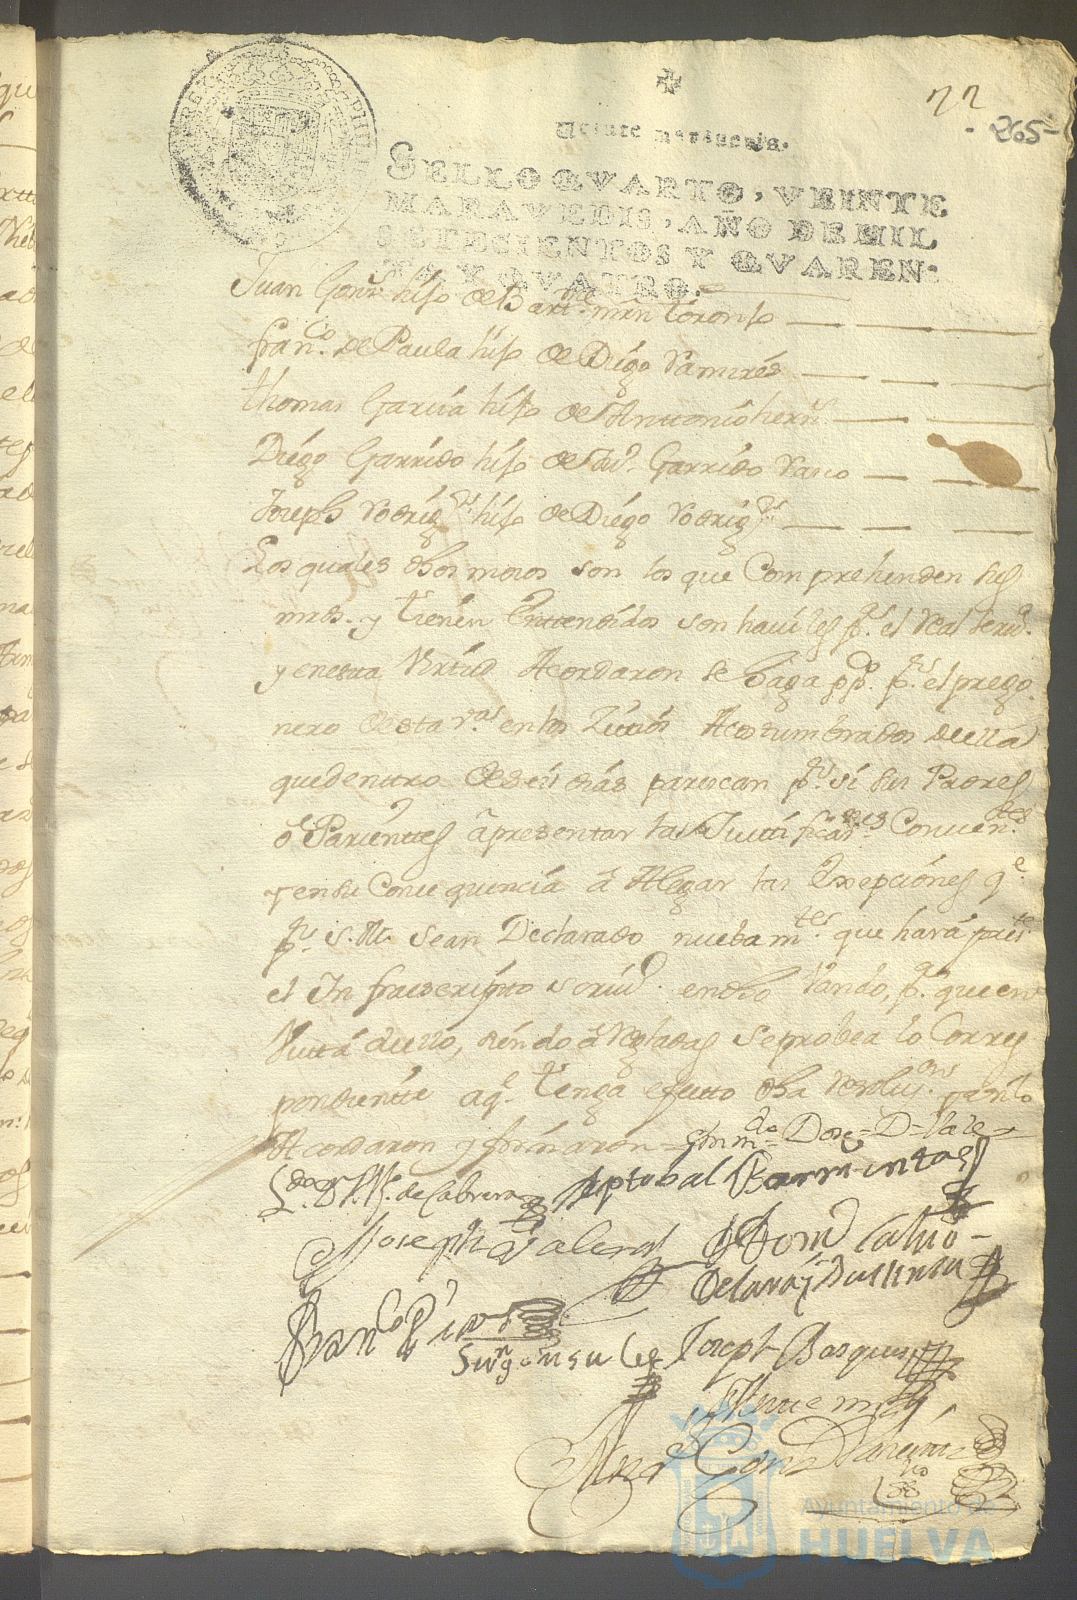 22
265
Veinte maravedis.
SELLO QVARTO, VEINTE
MARAVEDIS, AÑO DE MIL
SETECIENTOS Y QVAREN-
TA Y QVATRO.
Juan Gonz.s hijo de Bart.me mrn toronjo
fran.co de Paula hijo de Diego Ramires
thomas Garcia hijo de Antonio hern.s
Diego Garrido hijo de Garrido
Joseph Rodrig.s hijo de Diego Rodrig.s
Los quales dhos mosos son los que Comprehenden sus
mrds. y tienen Enttendidos son haviles p.a el Real seru.o
y en esta Virtud Acordaron se haga pp.co p.r el prego
nero desta v.a en los Zitios Acostumbrados de ella
que dentro de seis dias parescan p.r si sus Padres
o Parientes a presentar las Justificas.nes Conven.tes
y en su Conсequencia a Alegar las Exepciones q.e
p.r S. M. sean Declarado nuebam.te que hará pres.te
el Infraescripto scriv.o en dho Vando, p.a que en
Vista de ello, siendo Regladas se probea lo Corres
pondiente a q.e tenga efecto dha Resolus.on y así lo
Acordaron y firmaron = Dose
de Cabrera Xptobal Barrientos
Joseph Dom.o Calvo
Fran.co
Ju.n gonsales Joseph Basques
Ante mi
Ayuntamiento de
HUELVA